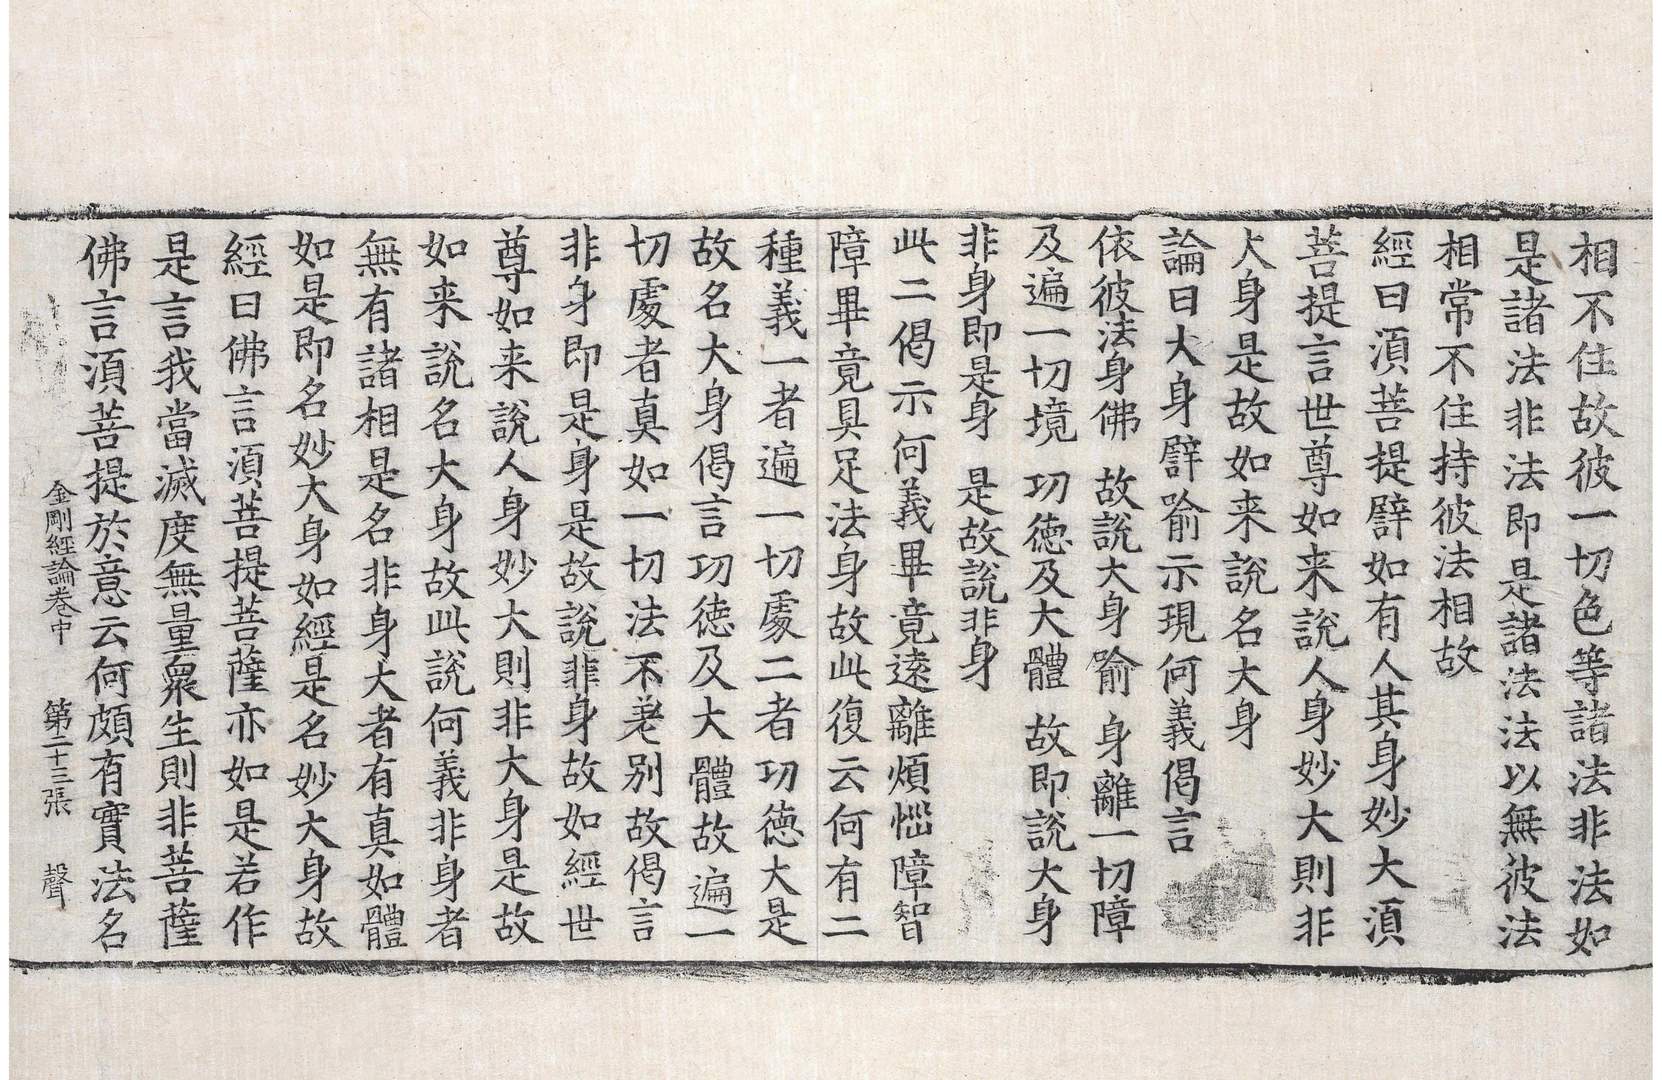 相不住故彼一切色等諸法非法如
是諸法非法即是諸法法以無彼法
相常不住持彼法相故
經曰湏菩提譬如有人其身妙大湏
菩提言世尊如来說人身妙大則非
大身是故如来說名大身
論曰大身譬喻示現何義偈言
依彼法身佛 故說大身喻 身離一切障
及遍一切境 功德及大體 故即說大身
非身即是身 是故說非身
此二偈示何義畢竟遠離煩惱障智
障畢竟具足法身故此復云何有二
種義一者遍一切處二者功德大是
故名大身偈言功德及大體故遍一
切處者真如一切法不差別故偈言
非身即是身是故說非身故如經世
尊如来說人身妙大則非大身是故
如来說名大身故此說何義非身者
無有諸相是名非身大者有真如體
如是即名妙大身如經是名妙大身故
經曰佛言湏菩提菩薩亦如是若作
是言我當滅度無量衆生則非菩薩
佛言湏菩提於意云何頗有實法名
金剛經論卷中 第二十三張 聲